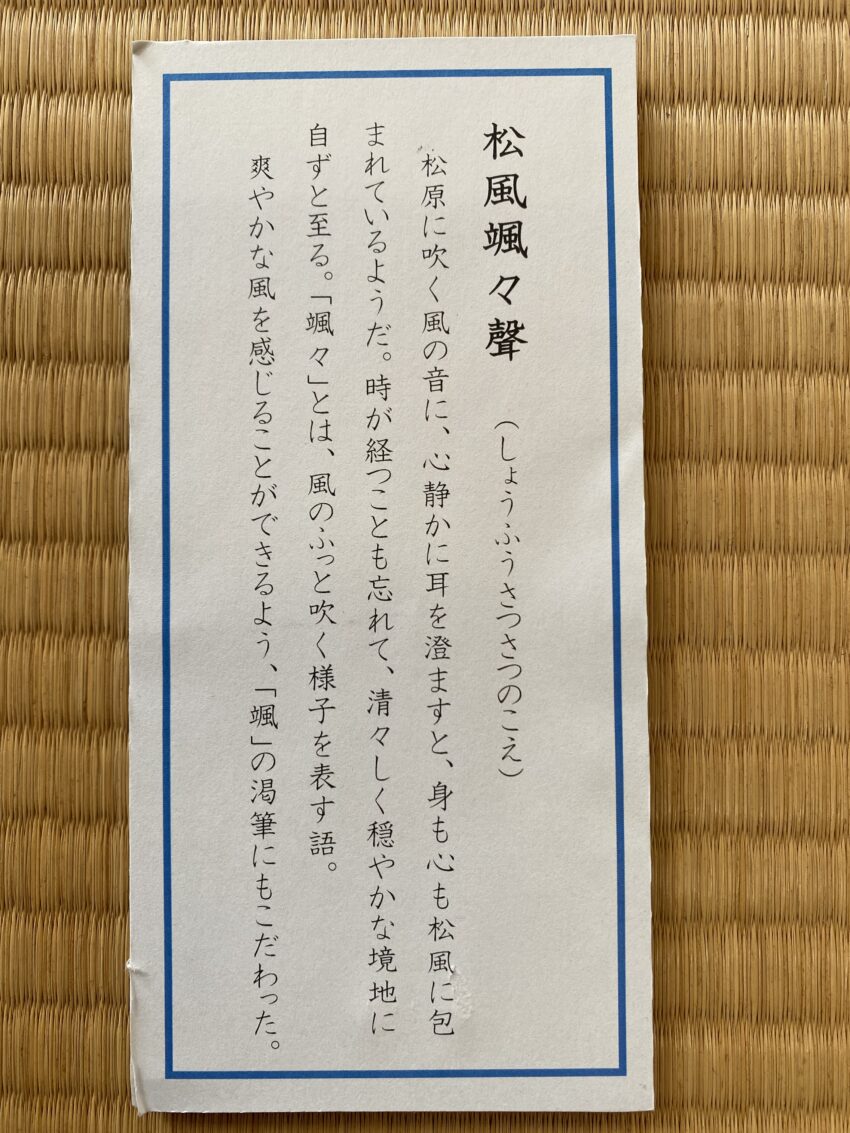 松風颯々聲 （しょうふうさつさつのこえ）
松原に吹く風の音に、心静かに耳を澄ますと、身も心も松風に包
まれているようだ。時が経つことも忘れて、清々しく穏やかな境地に
自ずと至る。「颯々」とは、風のふっと吹く様子を表す語。
爽やかな風を感じることができるよう、「颯」の渇筆にもこだわった。